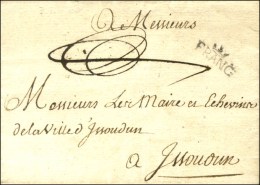 A Messieurs
FRANC
Messieurs Les Maire et Echevins
de la Ville d'Issoudun
a Issoudun